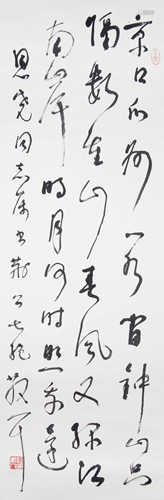 京口瓜洲一水间钟山只
隔数重山春风又绿江
南岸明月何时照我还
恩亮同志属书荆公七绝 散耳